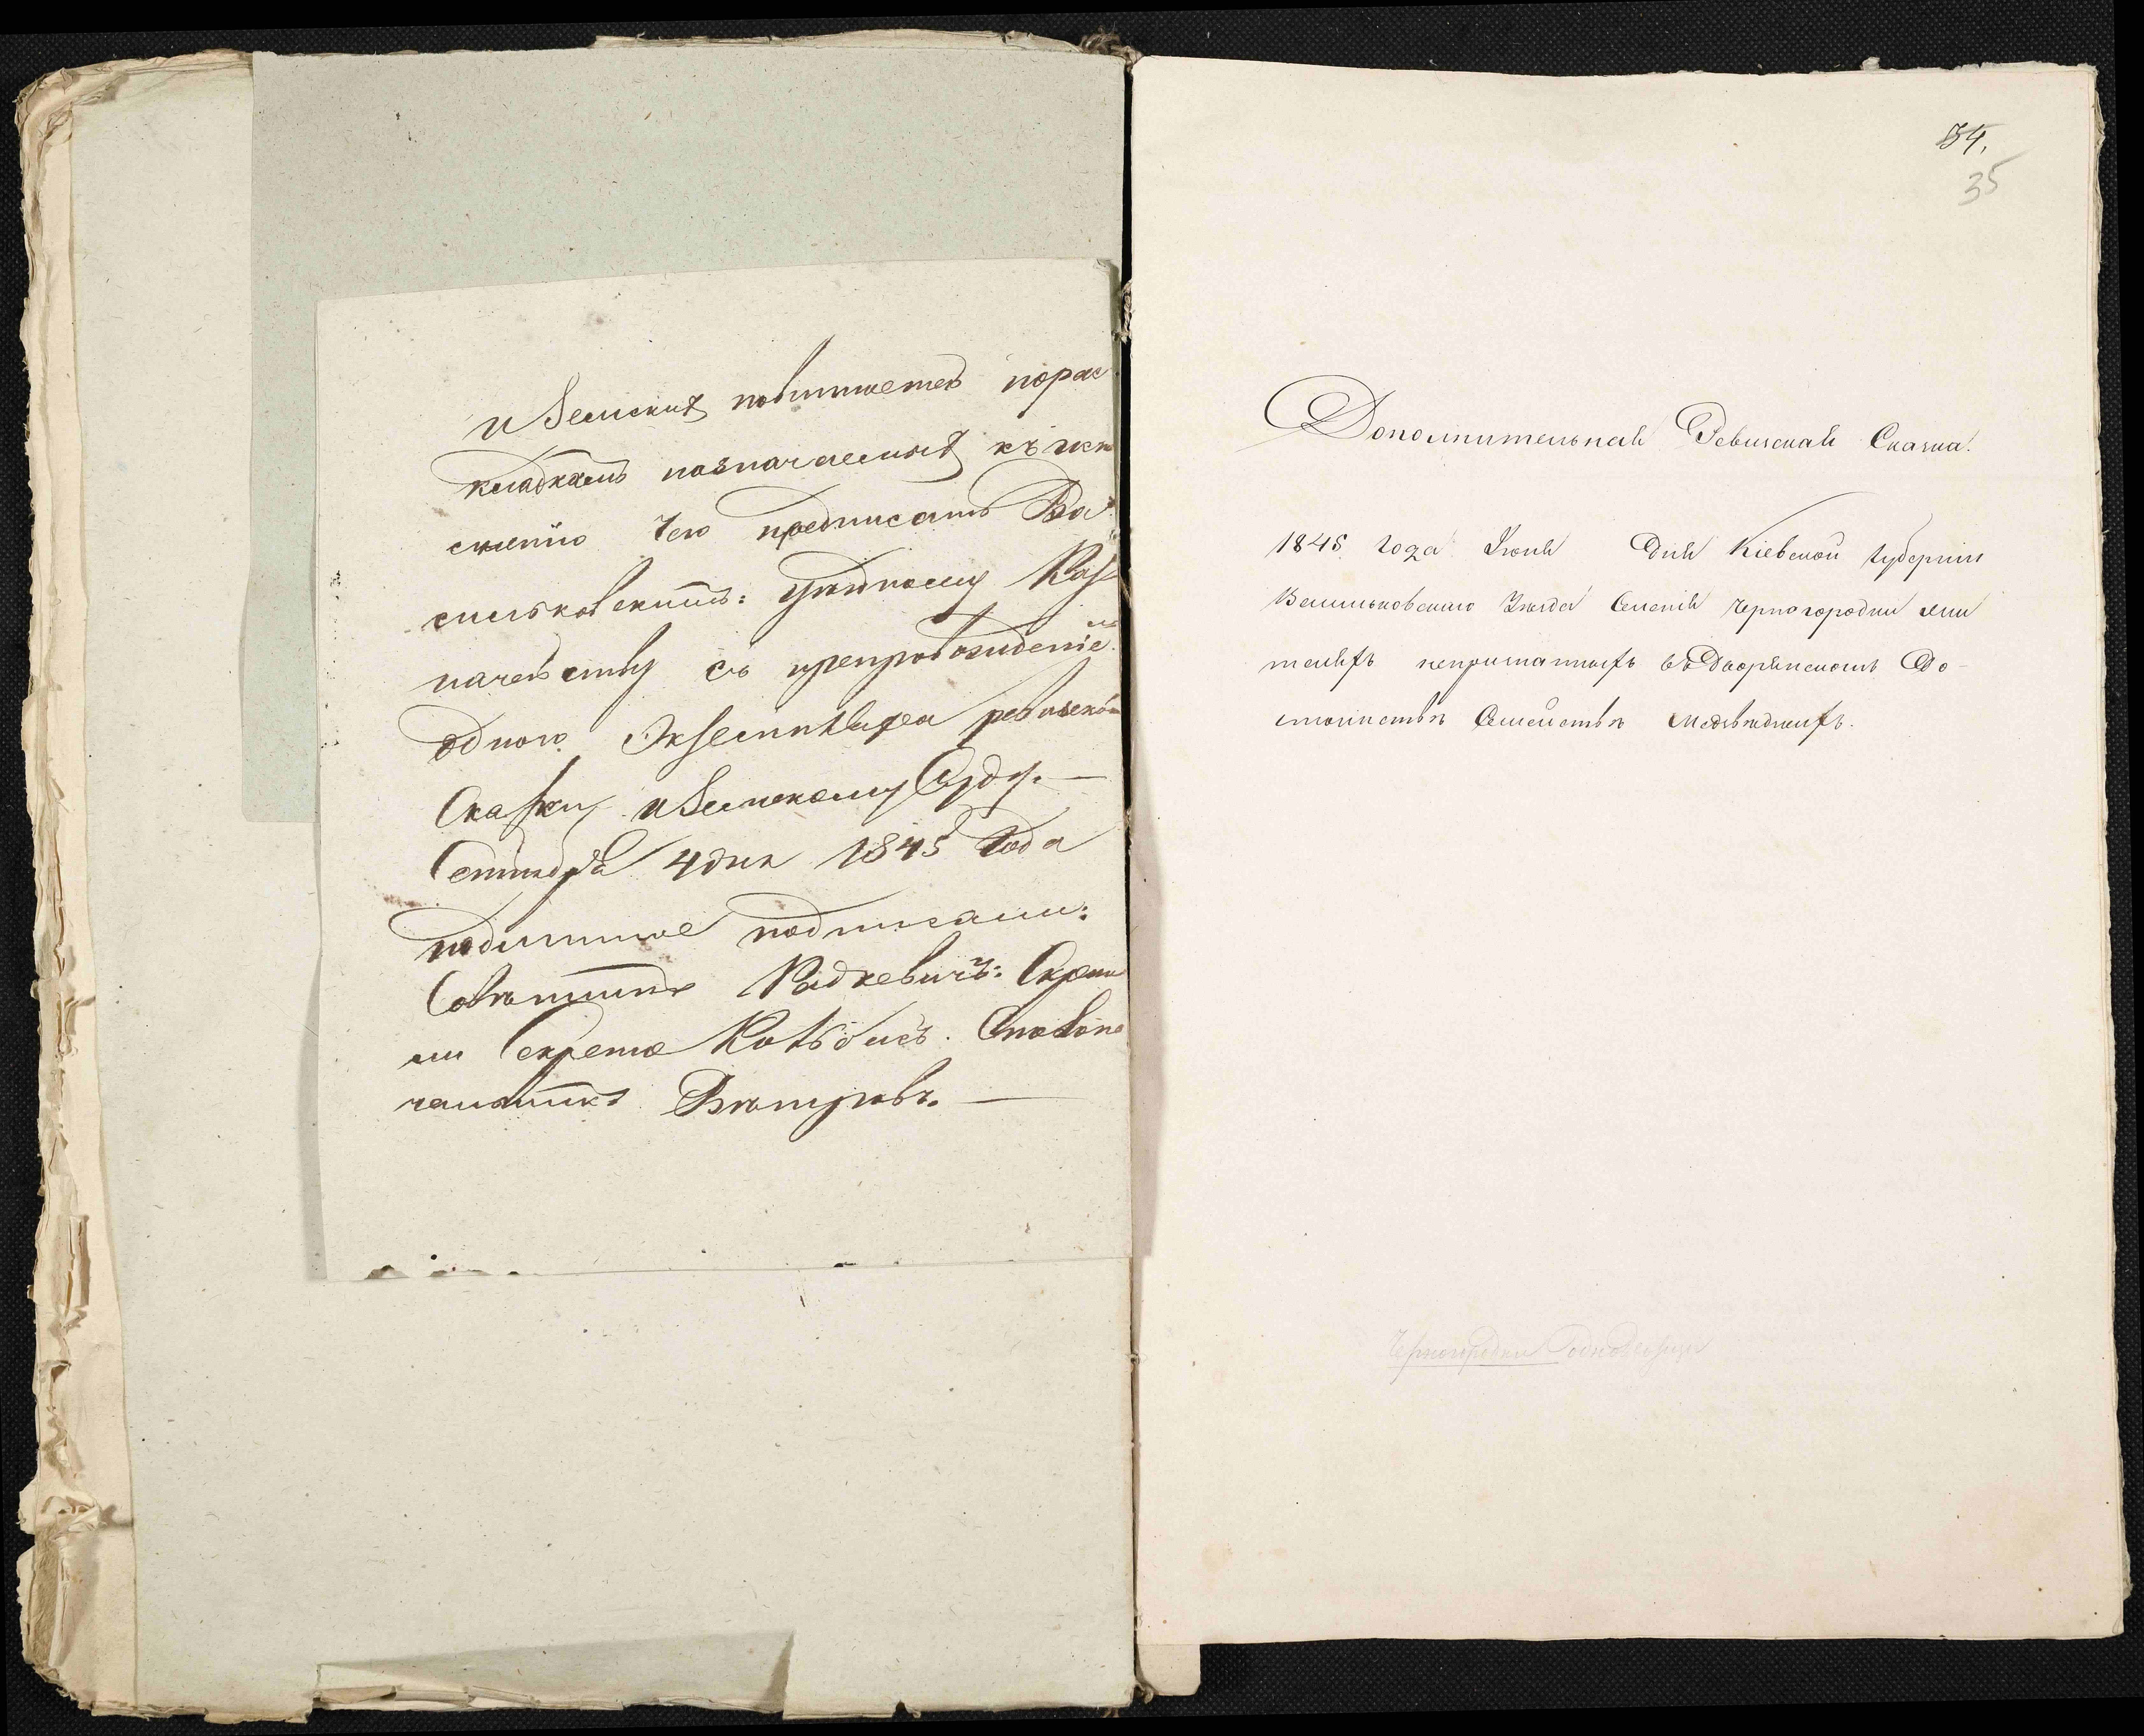 и Земских повинностей по рас
кладкам назначаемых къ испол
нению чего предписать Ва
сильковскимъ: Уездному Каз
начейству съ препровождение мъ
одного Экземпляра ревизской
Сказки и Земскому Суду. —
Сентября 4 дня 1845 Года
подлинное подписали:
Советникъ Радкевичъ: Скрепи
ли Секрета Столона
чальникъ Ветровъ. —
34.
35
Дополнительная Ревизская Сказка.
1845 года Июня Дня Кіевской губерніи
Васильковскаго Уезда Селенія Черногородки жи
телехъ непризнанныхъ въ Дворянскомъ До-
стоинстве Семействе Медведскихъ.
Черногородки Однодворцы